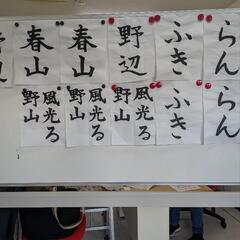 らん
ふき
野辺
春山
春山
らん
ふき
風光る
野山
風光る
野山
風光る
野山